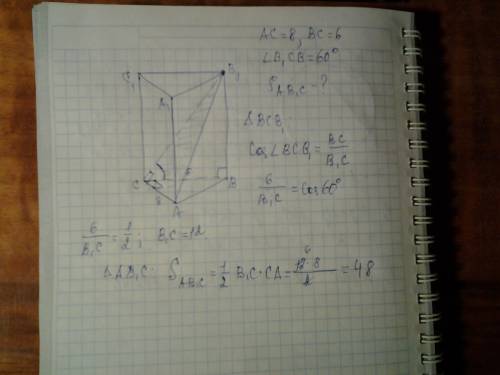 AC=8, BC=6
∠B₁CB=60°
S_AB₁C - ?
C₁ B₁
A₁
ΔBCB₁
Cos∠BCB₁ = BC/B₁C
6/B₁C = Cos 60°
C B
8 A
6/B₁C = 1/2; B₁C=12
ΔAB₁C: S_AB₁C = 1/2 B₁C · CA = 12·8/2 = 48